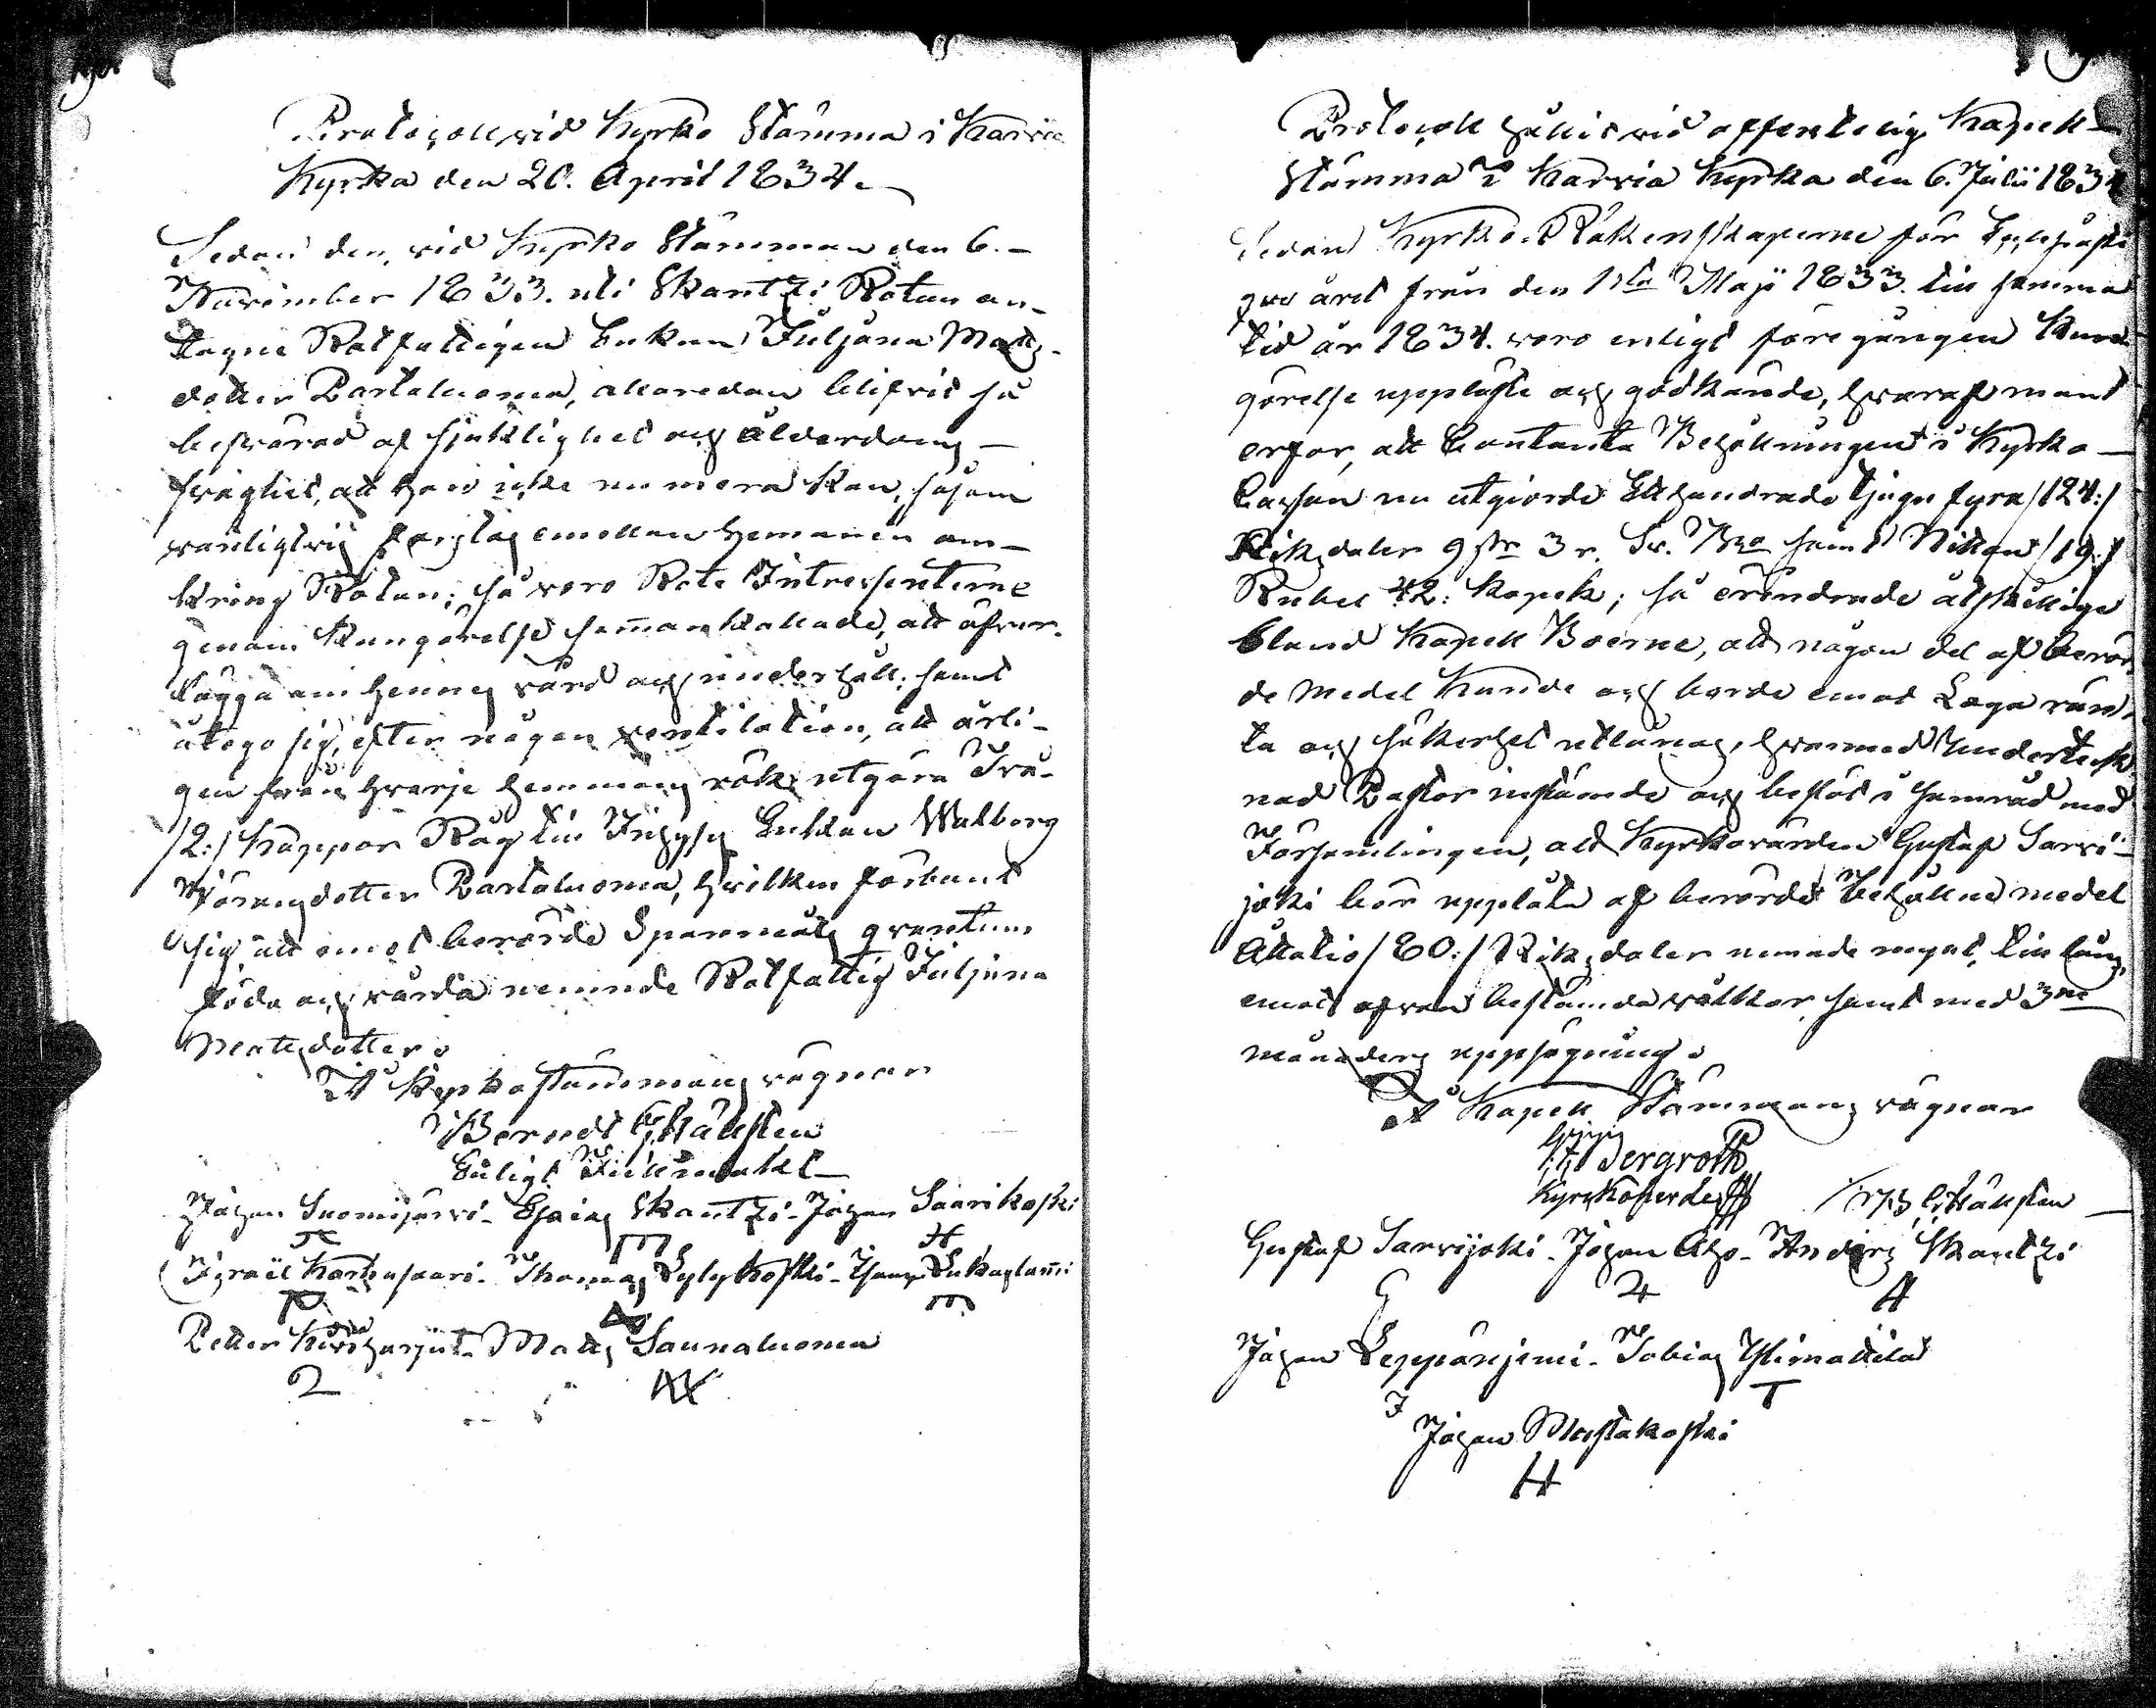 Protocoll vid Kyrko Stämma i Karvia
Kyrka den 20. April 1834.
Sedan den, vid Kyrko Stämman den 6.
November 1833. uti Skantzi Rotan an-
tagne Rotfattigen Enkan Juliana Matts-
dotter Rastaluoma, allaredan blifvit så
besvärad af sjuklighet och ålderdoms-
svaghet, att hon icke nu mera kan, såsom
vanligtvis, forslas emellan hemmanen om-
kring Rotan; så voro Rote Intressenterne
genom Kungörelse sammankallade, att öfver-
lägga om hennes vård och underhåll; samt
åtogo sig, efter någon ventilation, att årli-
gen från hvarje hemmans rök utgöra Två
/2:/ Kappor Råg till Inhyses Enkan Walborg
Göransdotter Rastaluoma, hvilken förband
sig, att emot berörde Spannmåls qvantum
föda och vårda nemnde Rotfattig Juliana
Mattsdotter.
På Kyrkostämmans vägnar
Bernd G. Hällsten
Enligt Fullmakt
Johan Suomijärvi - Esaias Skantzi - Johan Saarikoski
Israël Karhusaari - Thomas Lylykoski - Johan Lukaslami
Petter Kiviharju - Matts Saunaluoma
2
Protocoll hållit vid offentelig Kapell-
Stämma i Karvia Kyrka den 6. Julii 1834
Sedan Kyrko-Räkenskaperne för Ecclesiasti-
que året från den 1sta Maji 1833. till samma
tid år 1834. voro enligt föregången Kun-
görelse uppläste och godkände, hvaraf mand
erfor, att Contanta Behållningen i Kyrko-
Cassan nu utgiorde Etthundrade tjugu fyra /124:/
Riksdaler 9 sk 3 r. Sv. Bco samt Nitton /19:/
Rubel 42: Kopek; så erindrade åtskillige
bland Kapell Boerne, att någon del af berör-
de medel kunde och borde emot Laga rän-
ta och säkerhet utlånas, hvarmed Underteck-
nad Pastor instämde och beslöt i samråd med
Församlingen, att Kyrkovärden Gustaf Sarvi-
joki bör upplåta af berörde behållne medel
Åttatio /80:/ Riksdaler nemnde mynt, till låns,
emot ofvan bestämda vilkor, samt med 3ne
månaders uppsägning.
På Kapell Stämmans vägnar
Bergroth
Kyrkoherde
B. G. Hällsten
Gustaf Sarvijoki - Johan Aho - Anders Skantzi
G 4 A
Johan Leppäniemi - Tobias Ylimattila
J T
Johan Mustakoski
H